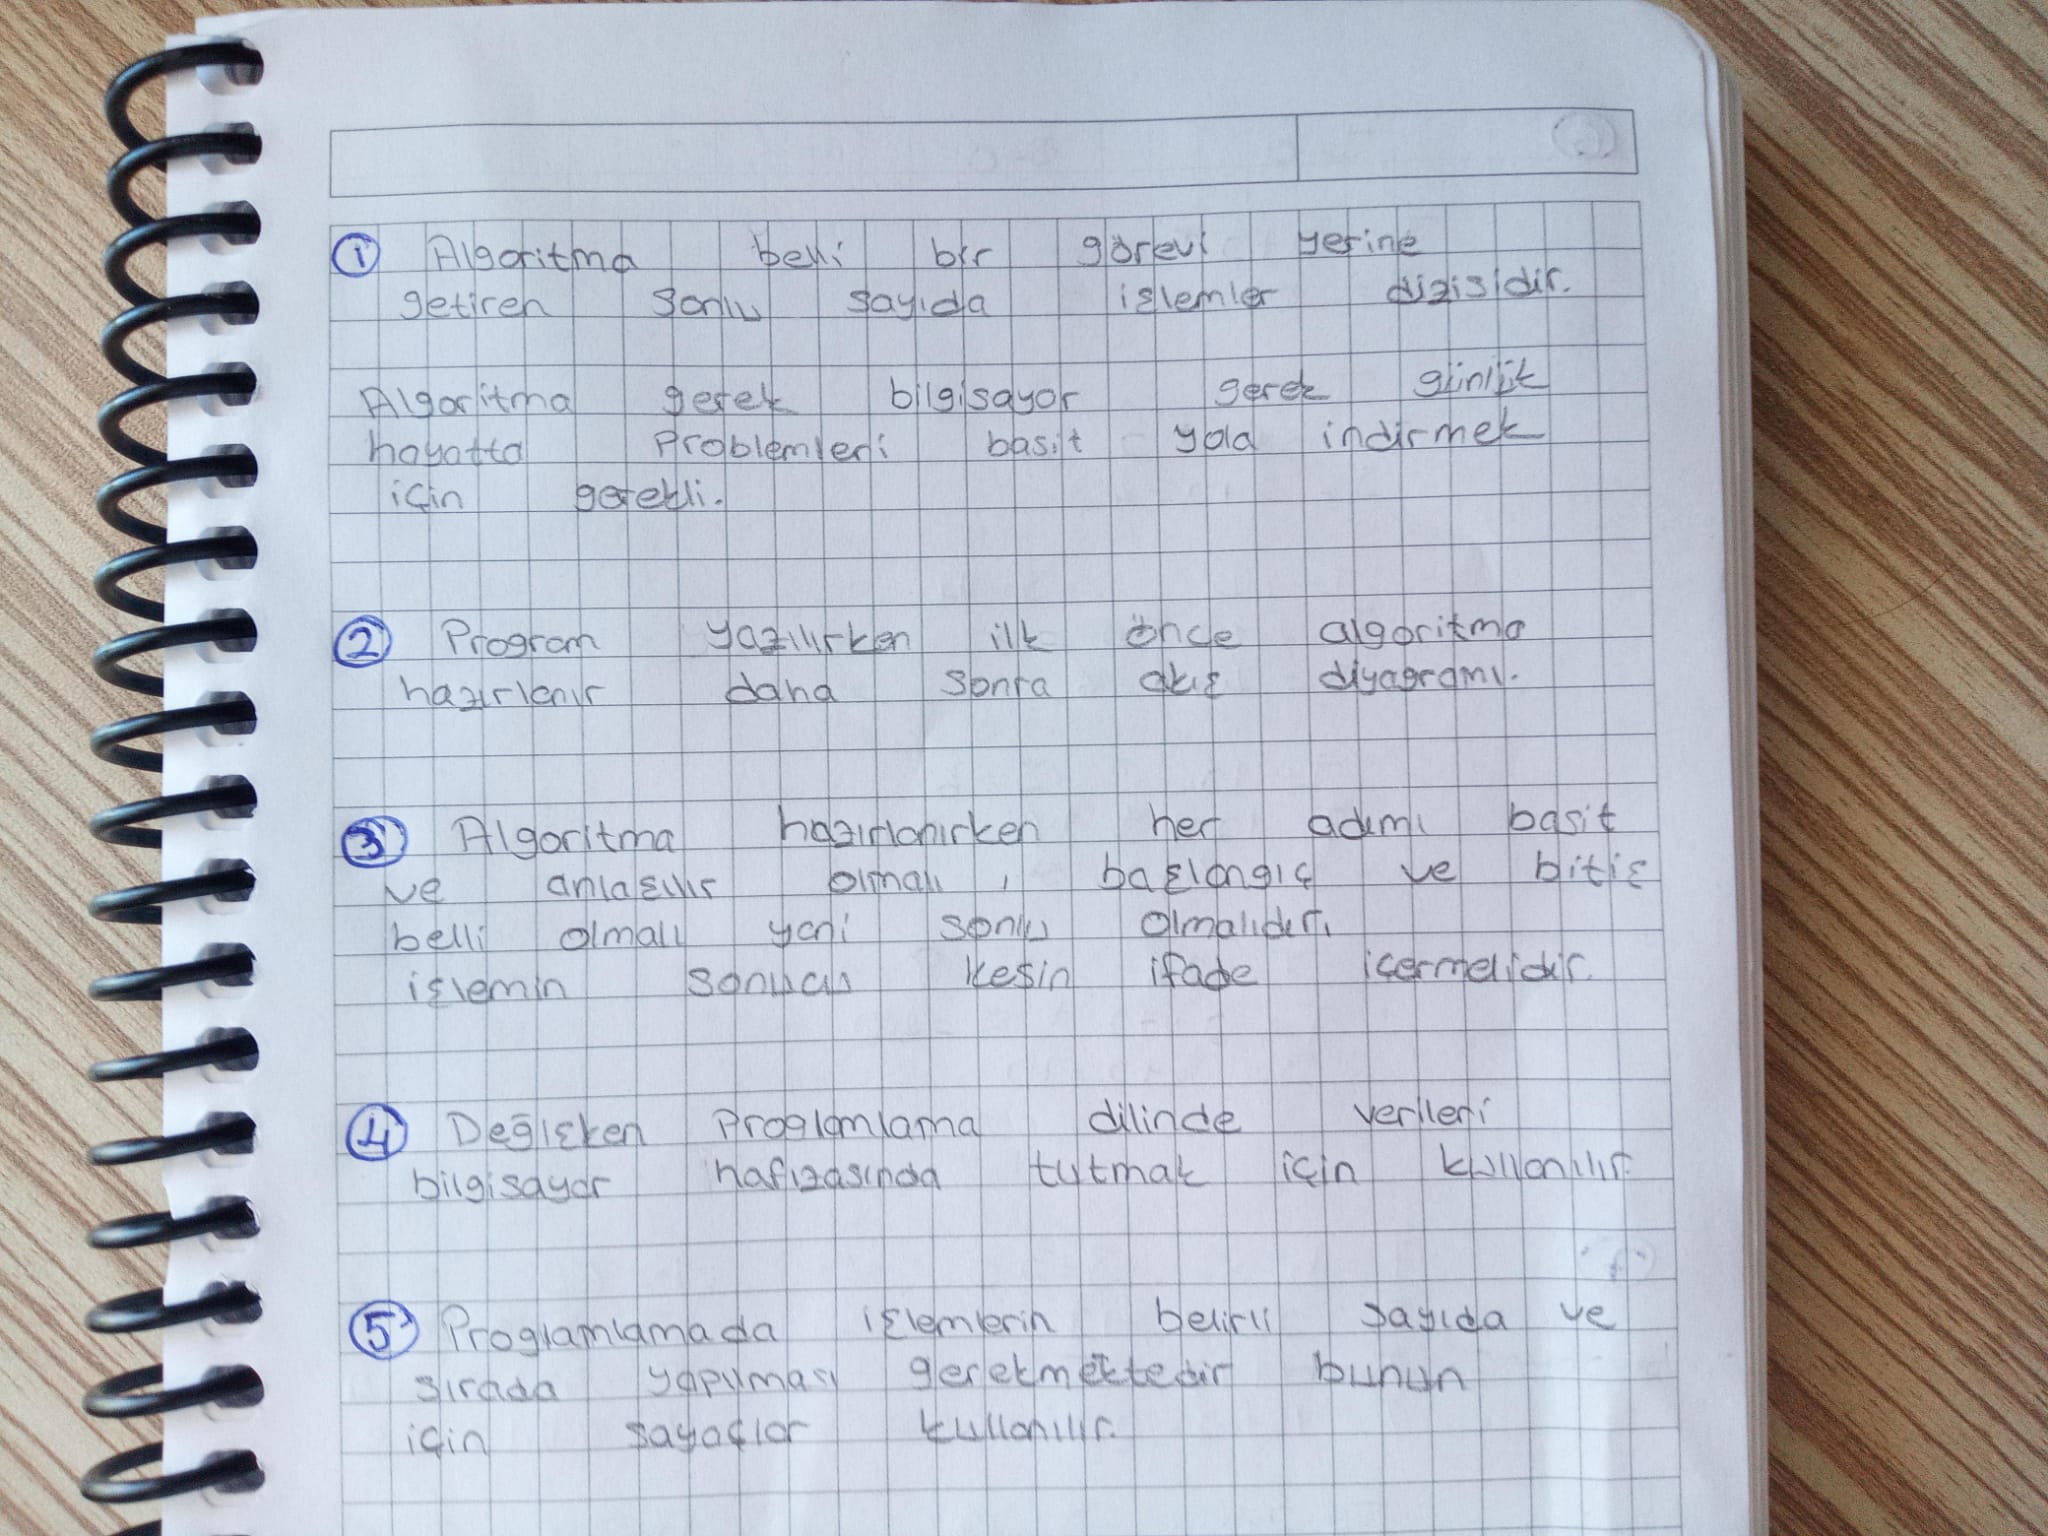 1 Algoritma belli bir görevi yerine
getiren sonlu sayıda işlemler dizisidir.
Algoritma gerek bilgisayar gerek günlük
hayatta problemleri basit yola indirmek
için gerekli.
2 Program yazılırken ilk önce algoritma
hazırlanır daha sonra akış diyagramı.
3 Algoritma hazırlanırken her adımı basit
ve anlaşılır olmalı, başlangıç ve bitiş
belli olmalı yani sonlu olmalıdır.
işlemin sonucu kesin ifade içermelidir.
4 Değişken Proglamlama dilinde verileri
bilgisayar hafızasında tutmak için kullanılır.
5 Proglamlamada işlemlerin belirli sayıda ve
sırada yapılması gerekmektedir bunun
için sayaçlar kullanılır.